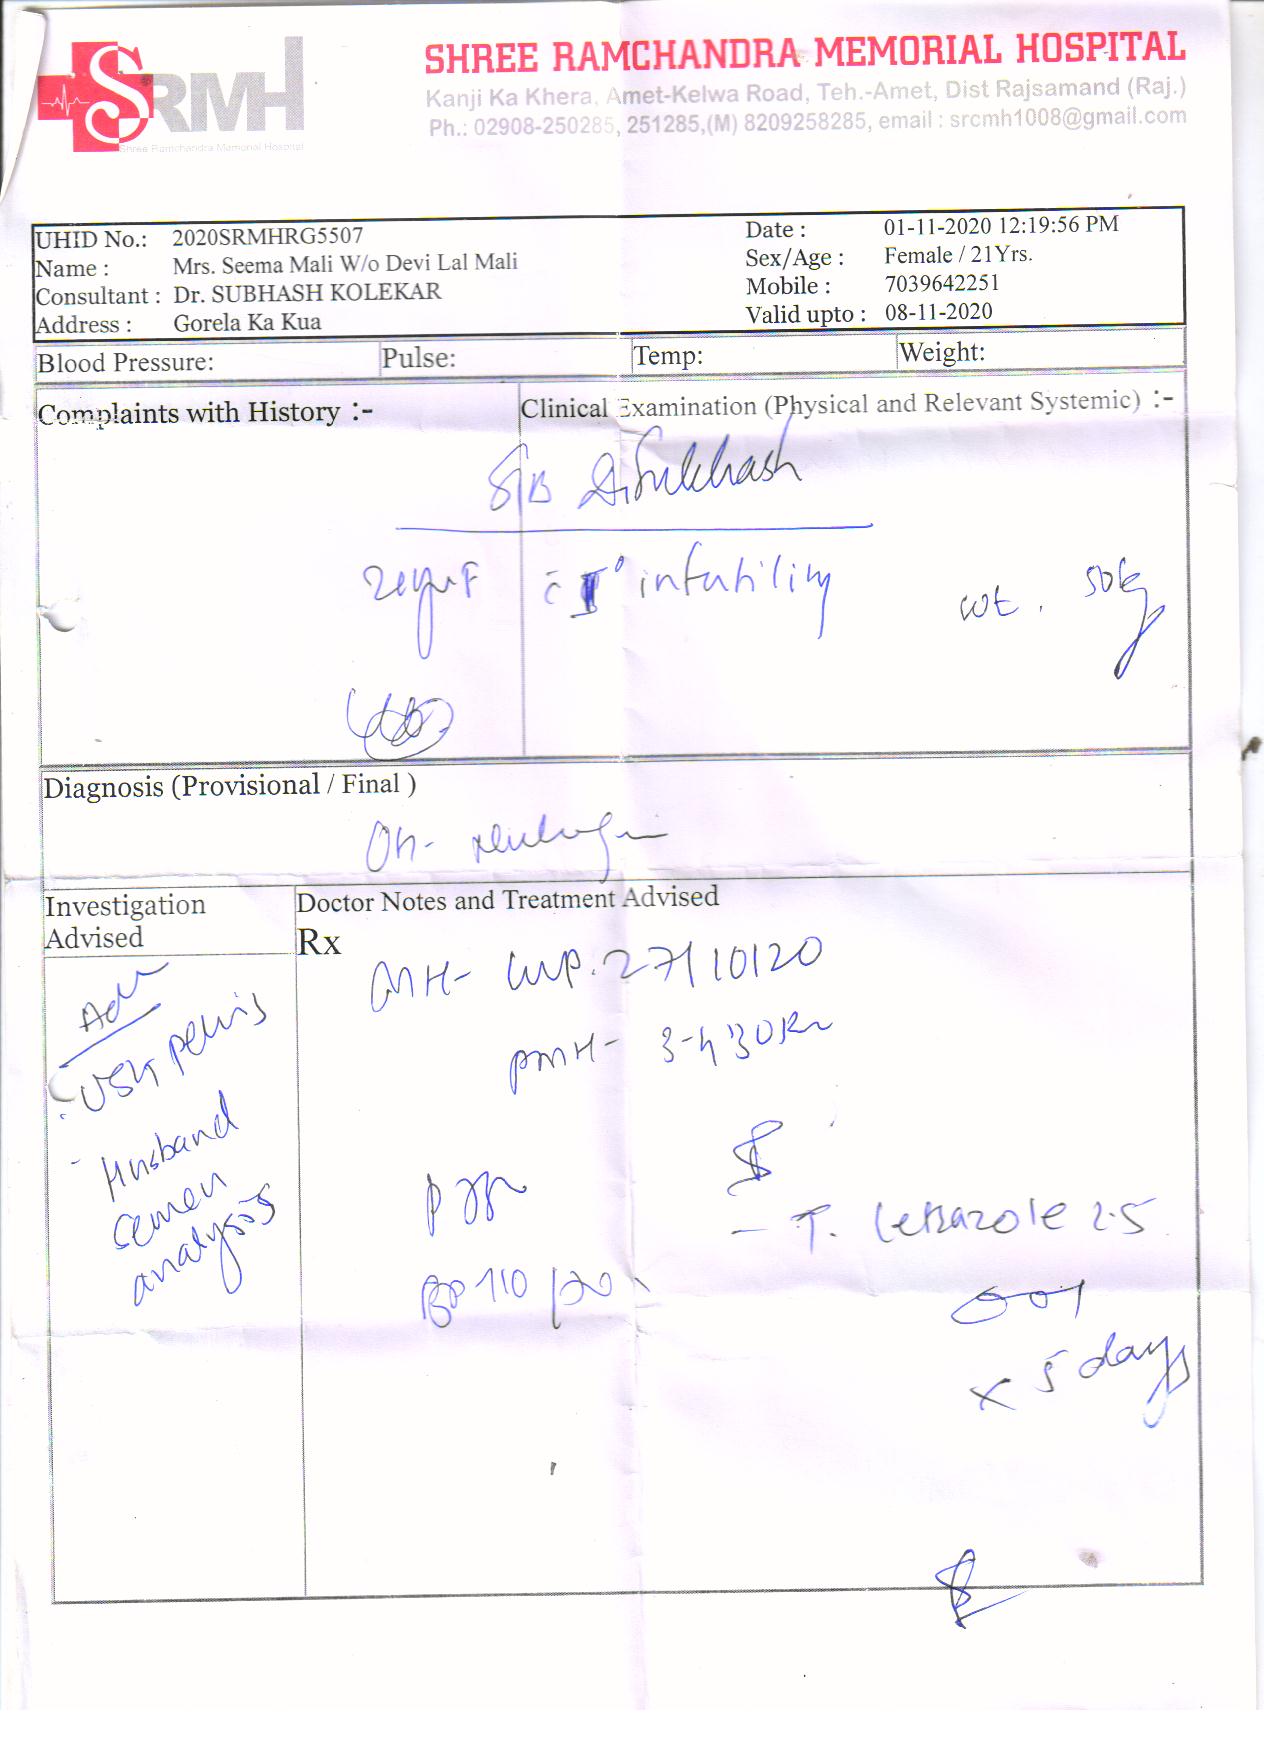 SRMH
Shree Ramchandra Mamorial Hospital
SHREE RAMCHANDRA MEMORIAL HOSPITAL
Kanji Ka Khera, Amet-Kelwa Road, Teh.-Amet, Dist Rajsamand (Raj.)
Ph.: 02908-250285, 251285,(M) 8209258285, email : srcmh1008@gmail.com
UHID No.: 2020SRMHRG5507 Date : 01-11-2020 12:19:56 PM
Name : Mrs. Seema Mali W/o Devi Lal Mali Sex/Age : Female / 21Yrs.
Consultant : Dr. SUBHASH KOLEKAR Mobile : 7039642251
Address : Gorela Ka Kua Valid upto : 08-11-2020
Blood Pressure: Pulse: Temp: Weight:
Complaints with History :- Clinical Examination (Physical and Relevant Systemic) :-
S/B Dr. Subhash
21yr F c̄ I° infertility wt. 50kg
Diagnosis (Provisional / Final )
OH-
Investigation Advised
Doctor Notes and Treatment Advised
Rx
Adv
USG pelvis
- Husband
cemen
analysis
MH- LMP. 27/10/20
PMH- 3-4/30
P
BP 110/70
- T. Letrazole 2.5
0-0-1
x 5 days